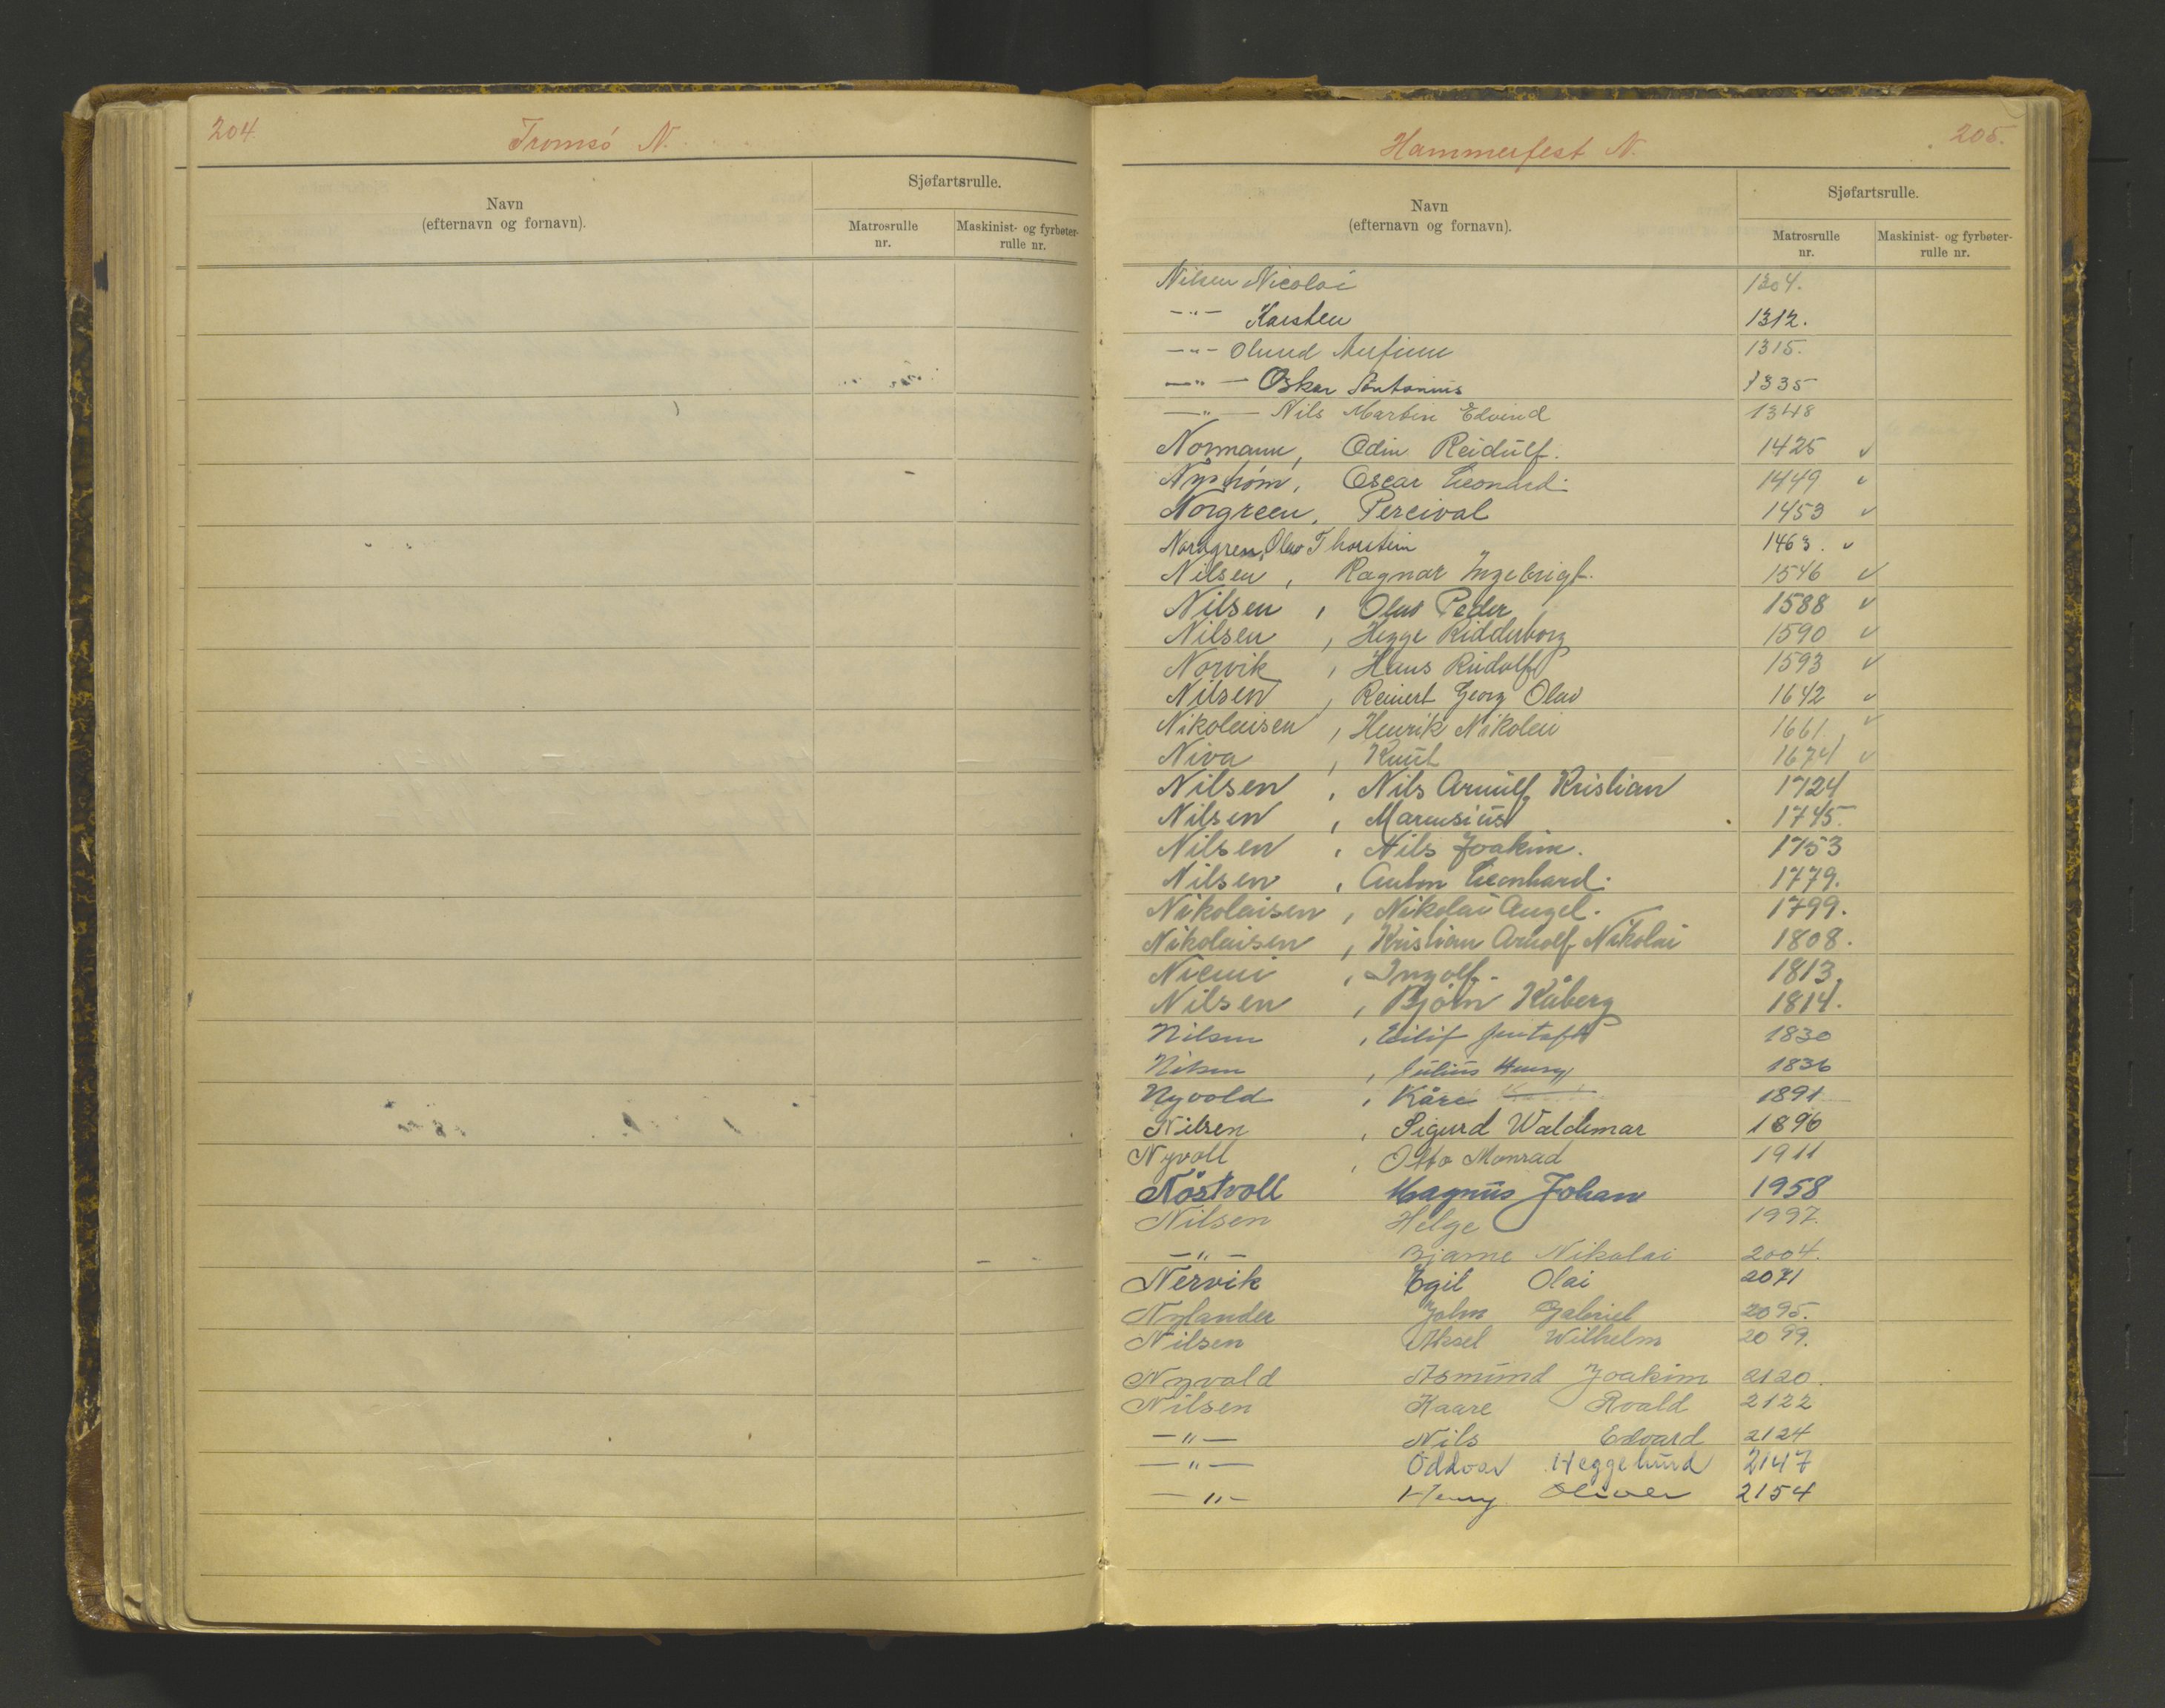 204
Tromsö N.
Navn
(efternavn og fornavn).
Sjøfartsrulle.
Matrosrulle
nr.
Maskinist- og fyrbøter-
rulle nr.
Hammerfest N. 205.
Navn
(efternavn og fornavn).
Sjøfartsrulle.
Matrosrulle
nr.
Maskinist- og fyrbøter-
rulle nr.
Nilsen Nicolai 1304.
—"— Karsten 1312.
—"— Olund 1315.
—"— Oskar Antonius 1335
—"— Nils Martin Edvind 1348
Normann, Odin Reidulf. 1425 ✓
Nyström, Oscar Leonard. 1449 ✓
Norgreen, Percival 1453 ✓
Nordgren, Olav Thorstein 1463. ✓
Nilsen, Ragnar Ingebrigt. 1546 ✓
Nilsen, Olav Peder 1588 ✓
Nilsen, Hegge Ridderborg 1590 ✓
Norvik, Hans Rudolf 1593 ✓
Nilsen, Reinert Georg Olav 1642 ✓
Nikolaisen, Henrik Nikolai 1661 ✓
Niva, Knut 1674 ✓
Nilsen, Nils Arnulf Kristian 1724
Nilsen, Marensius 1745.
Nilsen, Nils Joakim. 1753
Nilsen, Anton Leonhard. 1779.
Nikolaisen, Nikolai Angel. 1799.
Nikolaisen, Kristian Arnolf Nikolai 1808.
Niemi, Ingolf. 1813.
Nilsen, Bjørn Kåberg 1814.
Nilsen, Eilif Gustaf 1830
Nilsen, Julius Henry 1836
Nyvold, Kåre 1891
Nilsen, Sigurd Waldemar 1896
Nyvoll, Otto Monrad 1911
Nöstvoll Magnus Johan 1958
Nilsen Helge 1997.
—"— Bjarne Nikolai 2004.
Nervik Egil Olai 2071
Nylander John Gabriel 2095.
Nilsen Aksel Wilhelm 2099.
Nyvold Asmund Joakim 2120.
Nilsen Kaare Roald 2122
—"— Nils Edvard 2124
—"— Oddvar Heggelund 2147
—"— Henry Oliver 2154